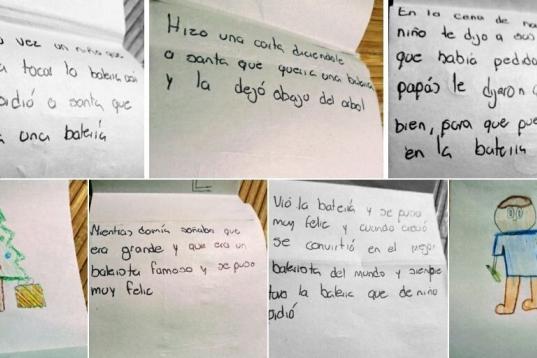 vez un niño que
tocar la bateria así
pidió a santa que
una batería
Hizo una carta diciendole
a santa que queria una bateria
y la dejó abajo del arbol
En la cena de
niño le dijo a sus
que había pedido
papás le dijeron
bien, para que
en la bateria
Mientras dormía soñaba que
era grande y que era un
baterista famoso y se puso
muy feliz
Vió la batería y se puso
muy feliz y cuando creció
se convirtió en el mejor
baterista del mundo y siempre
tuvo la bateria que de niño
pidió